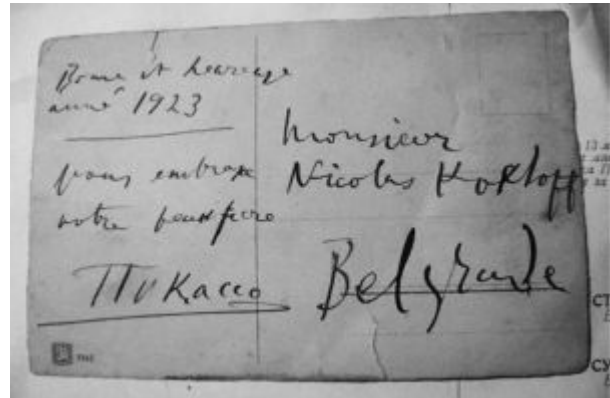 Bonne et heureuse
anné 1923
vous embrasse
votre beaufrere
Пикассо
Monsieur
Nicolas Kokloff
Belgrade
13
СТ
СУ